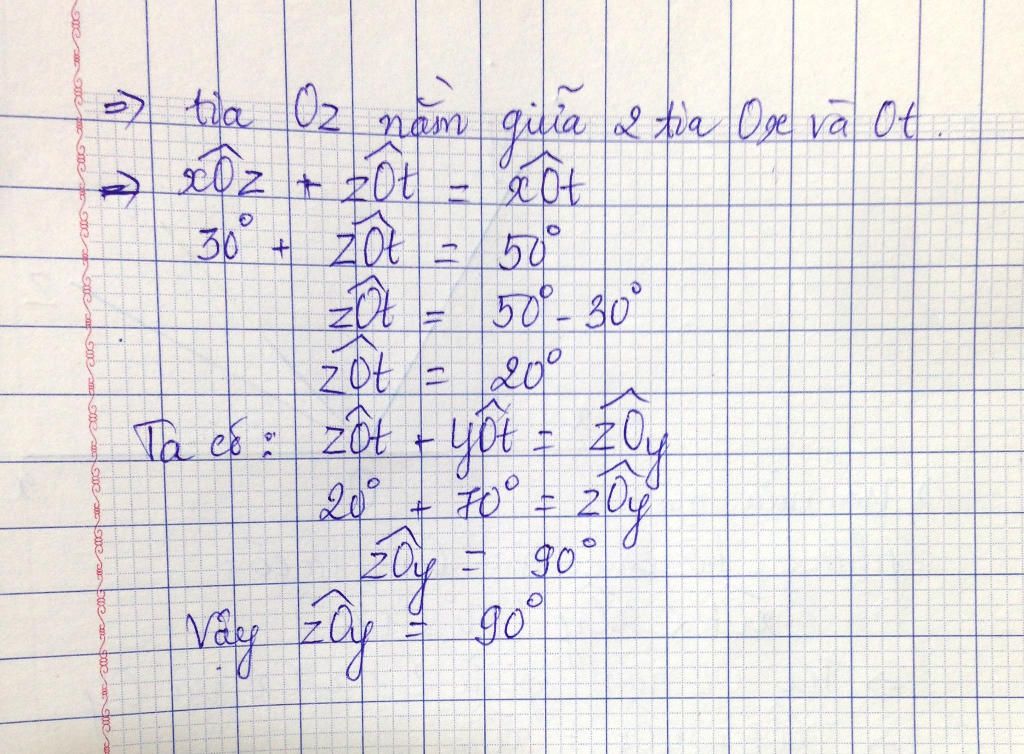 => tia Oz nằm giữa 2 tia Ox và Ot.
=> xÔz + zÔt = xÔt
30° + zÔt = 50°
zÔt = 50° - 30°
zÔt = 20°
Ta có: zÔt + yÔt = zÔy
20° + 70° = zÔy
zÔy = 90°
Vậy zÔy = 90°